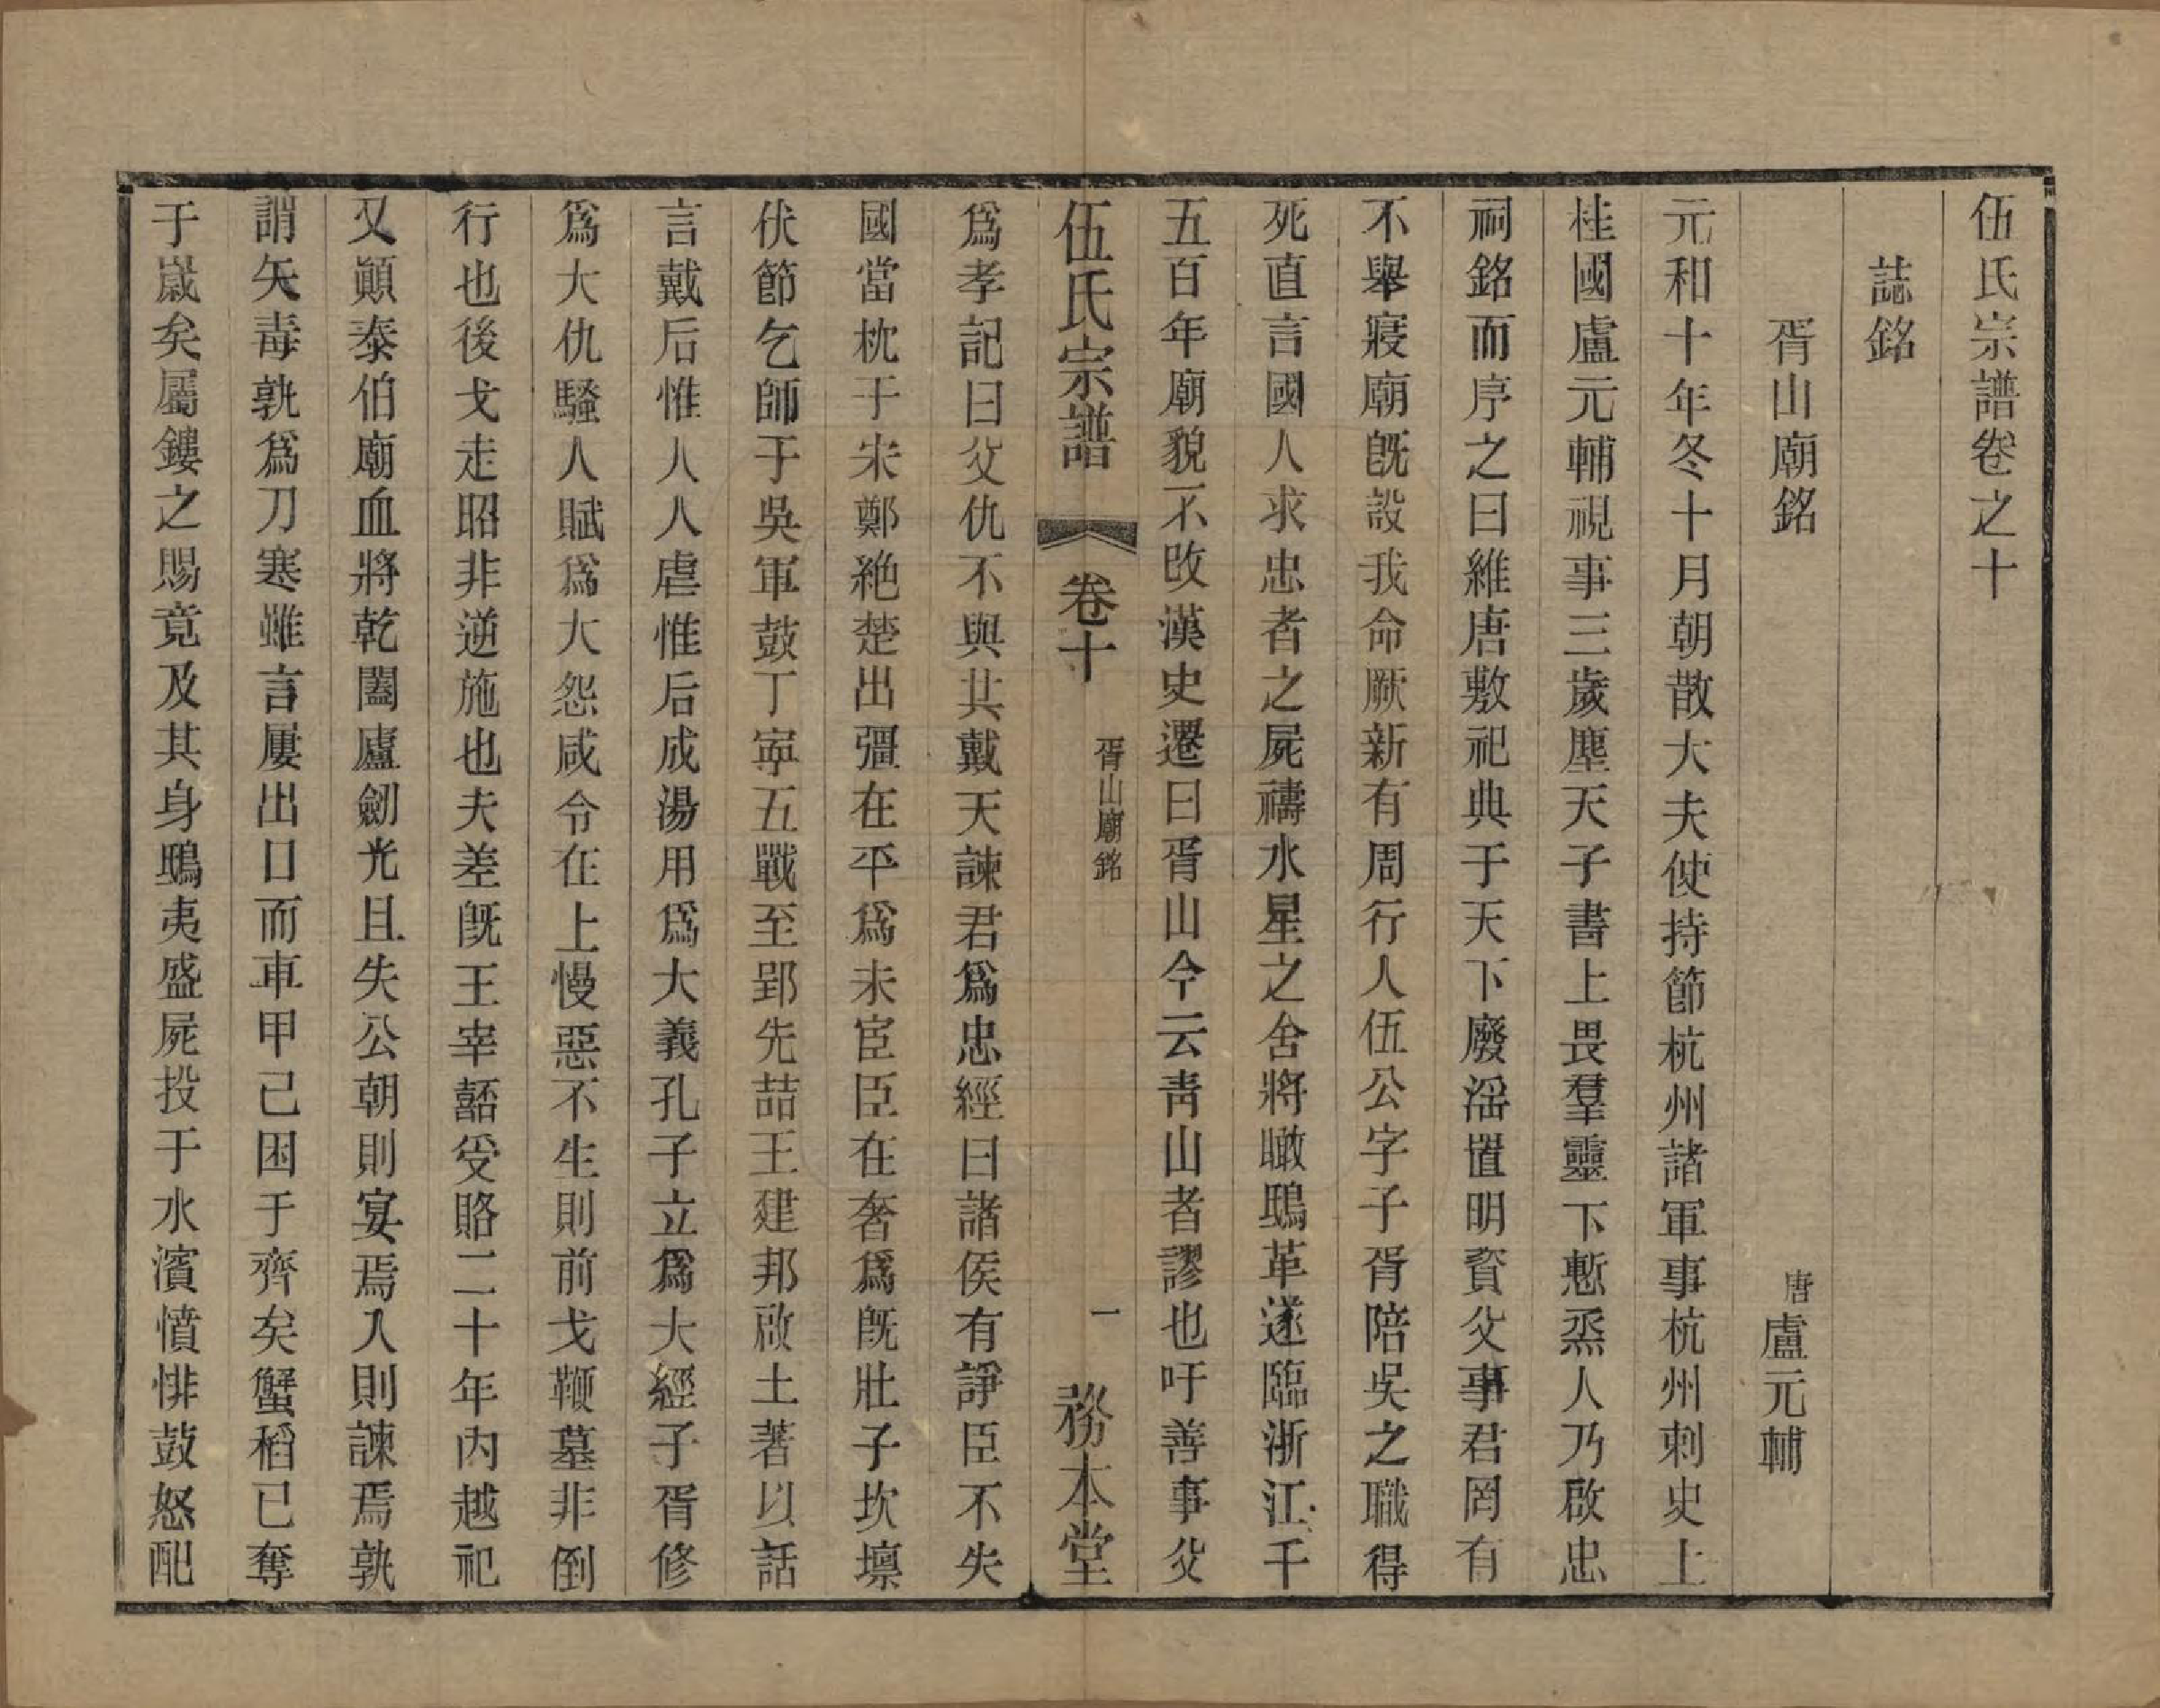 伍氏宗譜卷之十
誌銘
胥山廟銘　唐盧元輔
元和十年冬十月朝散大夫使持節杭州諸軍事杭州刺史上
桂國盧元輔視事三歲塵天子書上畏羣靈下慙烝人乃啟忠
祠銘而序之曰維唐敷祀典于天下廢淫置明資父事君罔有
不舉寢廟旣設我命厥新有周行人伍公字子胥陪吳之職得
死直言國人求忠者之屍禱水星之舍將瞰鴟革遂臨浙江千
五百年廟貌不改漢史遷曰胥山今云靑山者謬也吁善事父
伍氏宗譜　卷十　胥山廟銘　一　務本堂
爲孝記曰父仇不與共戴天諫君爲忠經曰諸侯有諍臣不失
國當枕于宋鄭絶楚出彊在平爲未宦臣在奢爲旣壯子坎壇
伏節乞師于吳軍鼓丁寧五戰至郢先喆王建邦啟土著以話
言戴后惟人人虐惟后成湯用爲大義孔子立爲大經子胥修
爲大仇騷人賦爲大怨咸令在上慢惡不生則前戈鞭墓非倒
行也後戈走昭非逆施也夫差旣王宰嚭受賂二十年內越祀
又顚泰伯廟血將乾闔廬劒光且失公朝則宴焉入則諫焉孰
謂矢毒孰爲刀寒雖言屢出口而車甲己困于齊矣蟹稻已奪
于歲矣屬鏤之賜竟及其身鴟夷盛屍投于水濱憤悱鼓怒配